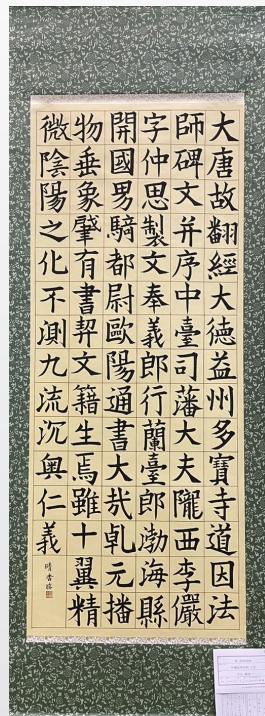 大唐故翻經大德益州多寶寺道因法
師碑文并序中臺司藩大夫隴西李儼
字仲思製文奉義郎行蘭臺郎渤海縣
開國男騎都尉歐陽通書大哉乹元播
物垂象肇有書契文籍生焉雖十翼精
微陰陽之化不測九流沉奥仁義
晴香臨